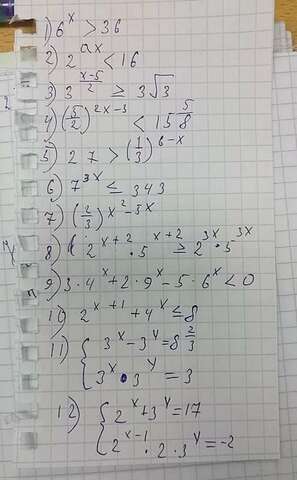 1) 6^x > 36
2) 2^ax < 16
3) 3^(x-5)/2 ≥ 3√3
4) (5/2)^2x-3 < 15 5/8
5) 27 > (1/3)^6-x
6) 7^3x ≤ 343
7) (2/3)^x²-3x
8) 2^x+2 · 5^x+2 ≥ 2^3x · 5^3x
9) 3·4^x+2·9^x-5·6^x<0
10) 2^x+1 + 4^x ≤ 8
11) { 3^x-3^y=8 2/3
3^x·3^y = 3
12) { 2^x+3^y=17
2^x-1 · 2·3^y=-2